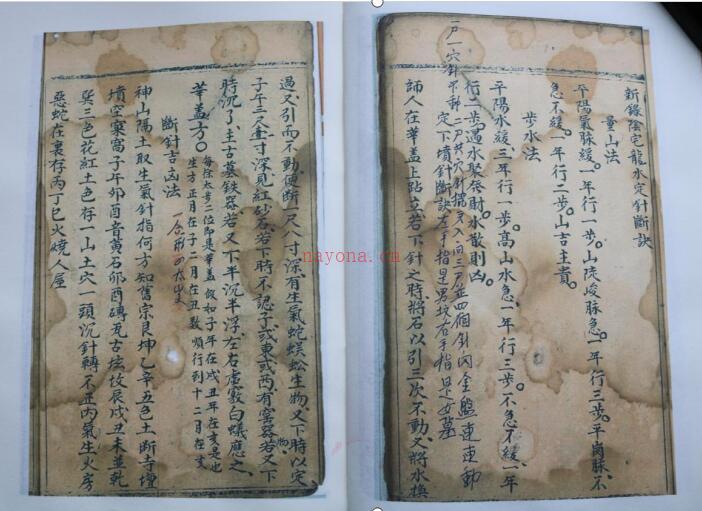 新錄陰宅龍水定針斷訣
量山法
平陽氣脈緩。一年行一步。山陵峻脈急。一年行三步。平崗脈不
急不緩。一年行二步。山吉主貴。
步水法
平陽水緩、三年行一步。高山水急、一年行三步。不急不緩、一年
行二步。遇水聚發財、水散則凶。
一户一穴針不斜 二户共穴針
定下墳針斷訣左手指是男坟右手指是女墓
師人在華蓋上跕立若下針之時將石以引三次不動又將水換
過又引而不動便斷一尺八寸深有生氣蛇蜈蚣生物、又下時以定、
子午三尺壹寸深見紅砂石若下時不認子或東或西、有窰器若又下
時沉了、主古墓鉄器若又下半沉半浮、左右虛竅白蟻應之、
華蓋方。每除太歲二位即是華蓋 假如子年在戌丑年在亥是也
生方正月在子二月在丑數 順行到十二月在亥
斷針吉凶法
神山陽土取生氣針指何方知舊宗艮坤乙辛五色土斷寺壇
墳空窠窩子午卯酉音黄石卯酉磚瓦古坟坟辰戌丑未並乾
巽三色花紅土色存一山土穴一頭沉針轉不正内氣生火房
惡蛇在裏存丙丁巳火燒人屋
nayona.cn